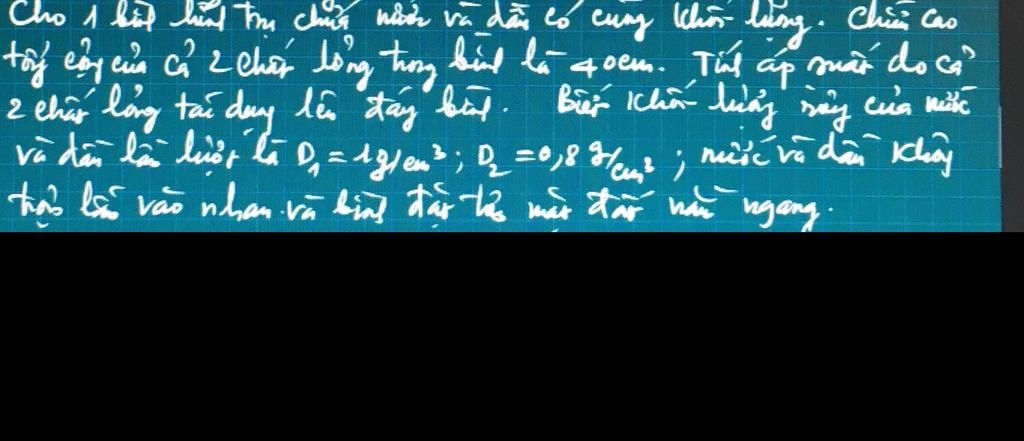 Cho 1 bình hình trụ chứa nước và dầu có cùng khối lượng. Chiều cao
tổng cộng của cả 2 chất lỏng trong bình là 40cm. Tính áp suất do cả
2 chất lỏng tác dụng lên đáy bình. Biết khối lượng riêng của nước
và dầu lần lượt là D₁ = 1g/cm³; D₂ = 0,8 g/cm³; nước và dầu không
trộn lẫn vào nhau và bình đặt trên mặt đất nằm ngang.